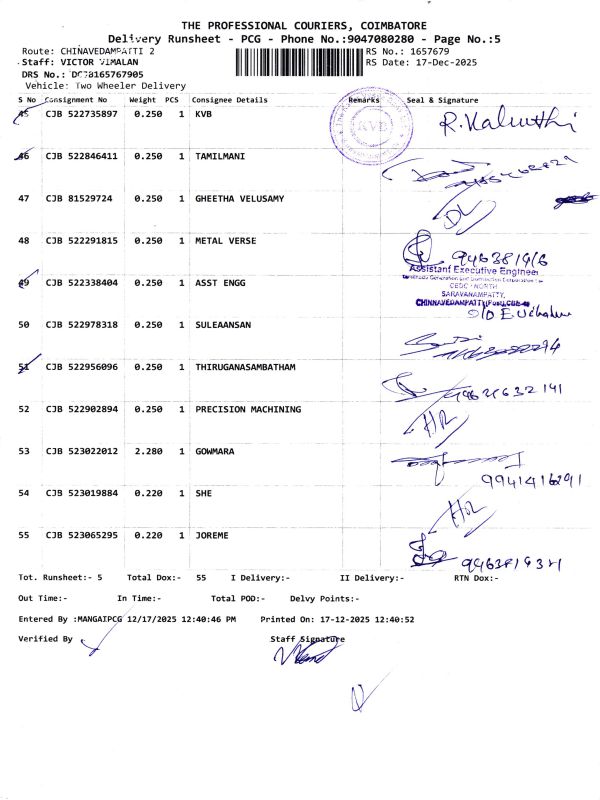 THE PROFESSIONAL COURIERS, COIMBATORE
Delivery Runsheet - PCG - Phone No.:9047080280 - Page No.:5
Route: CHINAVEDAMPATTI 2 RS No.: 1657679
Staff: VICTOR VIMALAN RS Date: 17-Dec-2025
DRS No.: DCJB165767905
Vehicle: Two Wheeler Delivery
S No Consignment No Weight PCS Consignee Details Remarks Seal & Signature
45 CJB 522735897 0.250 1 KVB KVB
46 CJB 522846411 0.250 1 TAMILMANI
47 CJB 81529724 0.250 1 GHEETHA VELUSAMY DL
48 CJB 522291815 0.250 1 METAL VERSE
Assistant Executive Engineer
CEDC - NORTH
49 CJB 522338404 0.250 1 ASST ENGG SARAVANAMPATTY,
50 CJB 522978318 0.250 1 SULEAANSAN
51 CJB 522956096 0.250 1 THIRUGANASAMBATHAM
52 CJB 522902894 0.250 1 PRECISION MACHINING
53 CJB 523022012 2.280 1 GOWMARA
9941416291
54 CJB 523019884 0.220 1 SHE
55 CJB 523065295 0.220 1 JOREME
Tot. Runsheet:- 5 Total Dox:- 55 I Delivery:- II Delivery:- RTN Dox:-
Out Time:- In Time:- Total POD:- Delvy Points:-
Entered By :MANGAIPCG 12/17/2025 12:40:46 PM Printed On: 17-12-2025 12:40:52
Verified By Staff Signature